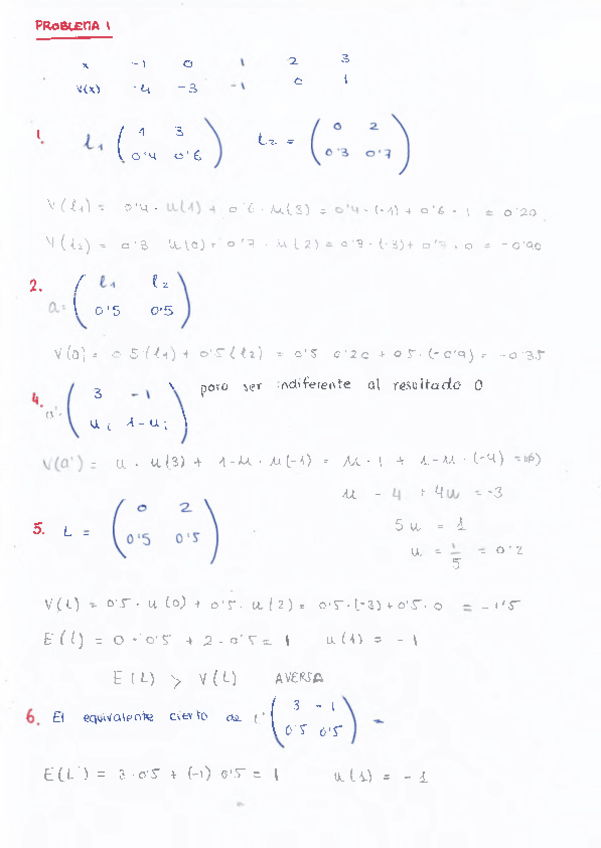 PROBLEMA 1
x -1 0 1 2 3
v(x) -4 -3 -1 0 1
1. l1 ( 1 3 ) l2 = ( 0 2 )
( 0'4 0'6 ) ( 0'3 0'7 )
V(l1) = 0'4 · u(1) + 0'6 · u(3) = 0'4 · (-1) + 0'6 · 1 = 0'20
V(l2) = 0'3 u(0) + 0'7 · u(2) = 0'3 · (-3) + 0'7 · 0 = -0'90
2. a = ( l1 l2 )
( 0'5 0'5 )
V(a) = 0'5 (l1) + 0'5 (l2) = 0'5 0'20 + 0'5 · (-0'9) = -0'35
4. a' ( 3 -1 ) para ser indiferente al resultado 0
( u; 1-u; )
V(a') = u · u(3) + 1-u · u(-1) = u · 1 + 1-u · (-4) =
u - 4 + 4u = -3
5u = 1
u = 1/5 = 0'2
5. L = ( 0 2 )
( 0'5 0'5 )
V(L) = 0'5 · u(0) + 0'5 · u(2) = 0'5 · (-3) + 0'5 · 0 = -1'5
E(L) = 0 · 0'5 + 2 · 0'5 = 1 u(1) = -1
E(L) > V(L) AVERSA
6. El equivalente cierto de L' ( 3 -1 ) =
( 0'5 0'5 )
E(L') = 3 · 0'5 + (-1) 0'5 = 1 u(1) = -1